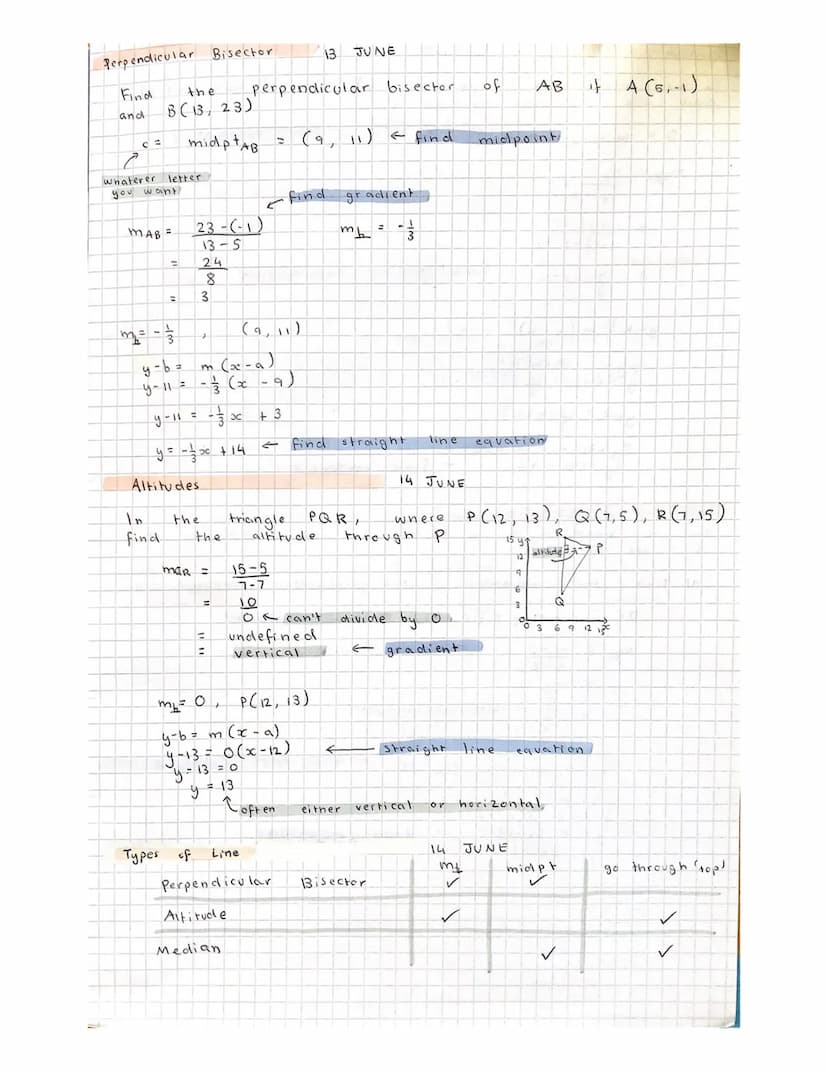 Perpendicular Bisector 13 JUNE
Find the perpendicular bisector of AB if A(5,-1)
and B(13, 23)
c = midpt_AB = (9, 11) ← find midpoint
whatever letter
you want
← find gradient
m_AB = 23-(-1)/13-5 m_⊥ = -1/3
= 24/8
= 3
m_⊥ = -1/3 , (9, 11)
y-b = m(x-a)
y-11 = -1/3(x - 9)
y-11 = -1/3x + 3
y = -1/3x +14 ← find straight line equation
Altitudes 14 JUNE
In the triangle PQR, where P(12, 13), Q(7,5), R(7,15)
find the altitude through P
15 y R
12 altitude P
9
6
3 Q
0
0 3 6 9 12 15 x
m_QR = 15-5/7-7
= 10/0 ← can't divide by 0
= undefined
= vertical ← gradient
m_⊥ = 0, P(12, 13)
y-b = m(x-a)
y-13 = 0(x-12) ← straight line equation
y-13 = 0
y = 13
↑ often either vertical or horizontal
Types of Line 14 JUNE
m_⊥ midpt go through 'top'
Perpendicular Bisector ✓ ✓
Altitude ✓ ✓
Median ✓ ✓